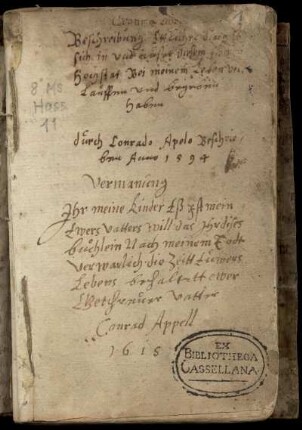 Beschreibung
sich in und
Hochstat Bei meinem Leben ver
Lauffen und begeben
haben
durch Conrado Apelo Beschrie
ben Anno 1594
8° Ms
Hass
11
Vermanung
Ihr meine Kinder Eß ist mein
Ewers vatters will das Ihr dises
buchlein Nach meinem Todt
verwarlich die Zeitt Euwers
Lebens behaltett ewer
vatter
Conrad Appell
1615
EX
BIBLIOTHECA
CASSELLANA